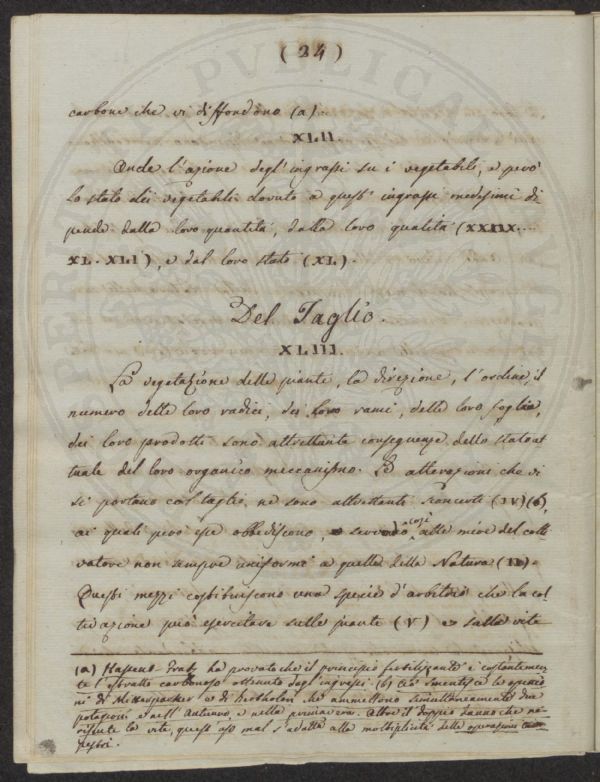 (24)
carbone che vi diffondono (a).
XLII.
Onde l'azione degl'ingrassi su i vegetabili, e però
lo stato dei vegetabili dovuto a questi ingrassi medesimi di
pende dalla loro quantità, dalla loro qualità (XXXIX..
XL. XLI), e dal loro stato (XL).
Del Taglio.
XLIII.
La vegetazione delle piante, la direzione, l'ordine, il
numero delle loro radici, dei loro rami, delle loro foglie,
dei loro prodotti sono altrettante conseguenze dello stato at
tuale del loro organico meccanismo. Le alterazioni che vi
si portano col taglio ne sono altrettanti sconcerti (IV) (b),
ai quali però esse obbediscono, servendo così alle mire del colti
vatore non sempre uniformi a quelle della Natura (II).
Questi mezzi costituiscono una specie d'arbitrio che la col
tivazione può esercitare sulle piante (V) e sulla vite
(a) Hassenfratz ha provato che il principio fertilizzante è costantemen
te l'estratto carbonoso ottenuto dagl'ingrassi. (b) Ciò smentisce le
di Mitterpacher e di Bertholon che ammettono simultaneamente due
potagioni e nell'Autunno, e nella primavera. Oltre il doppio danno che ne
risente la vite, quest'uso mal s'adatta alla moltiplicità delle operazioni cam
pestri.